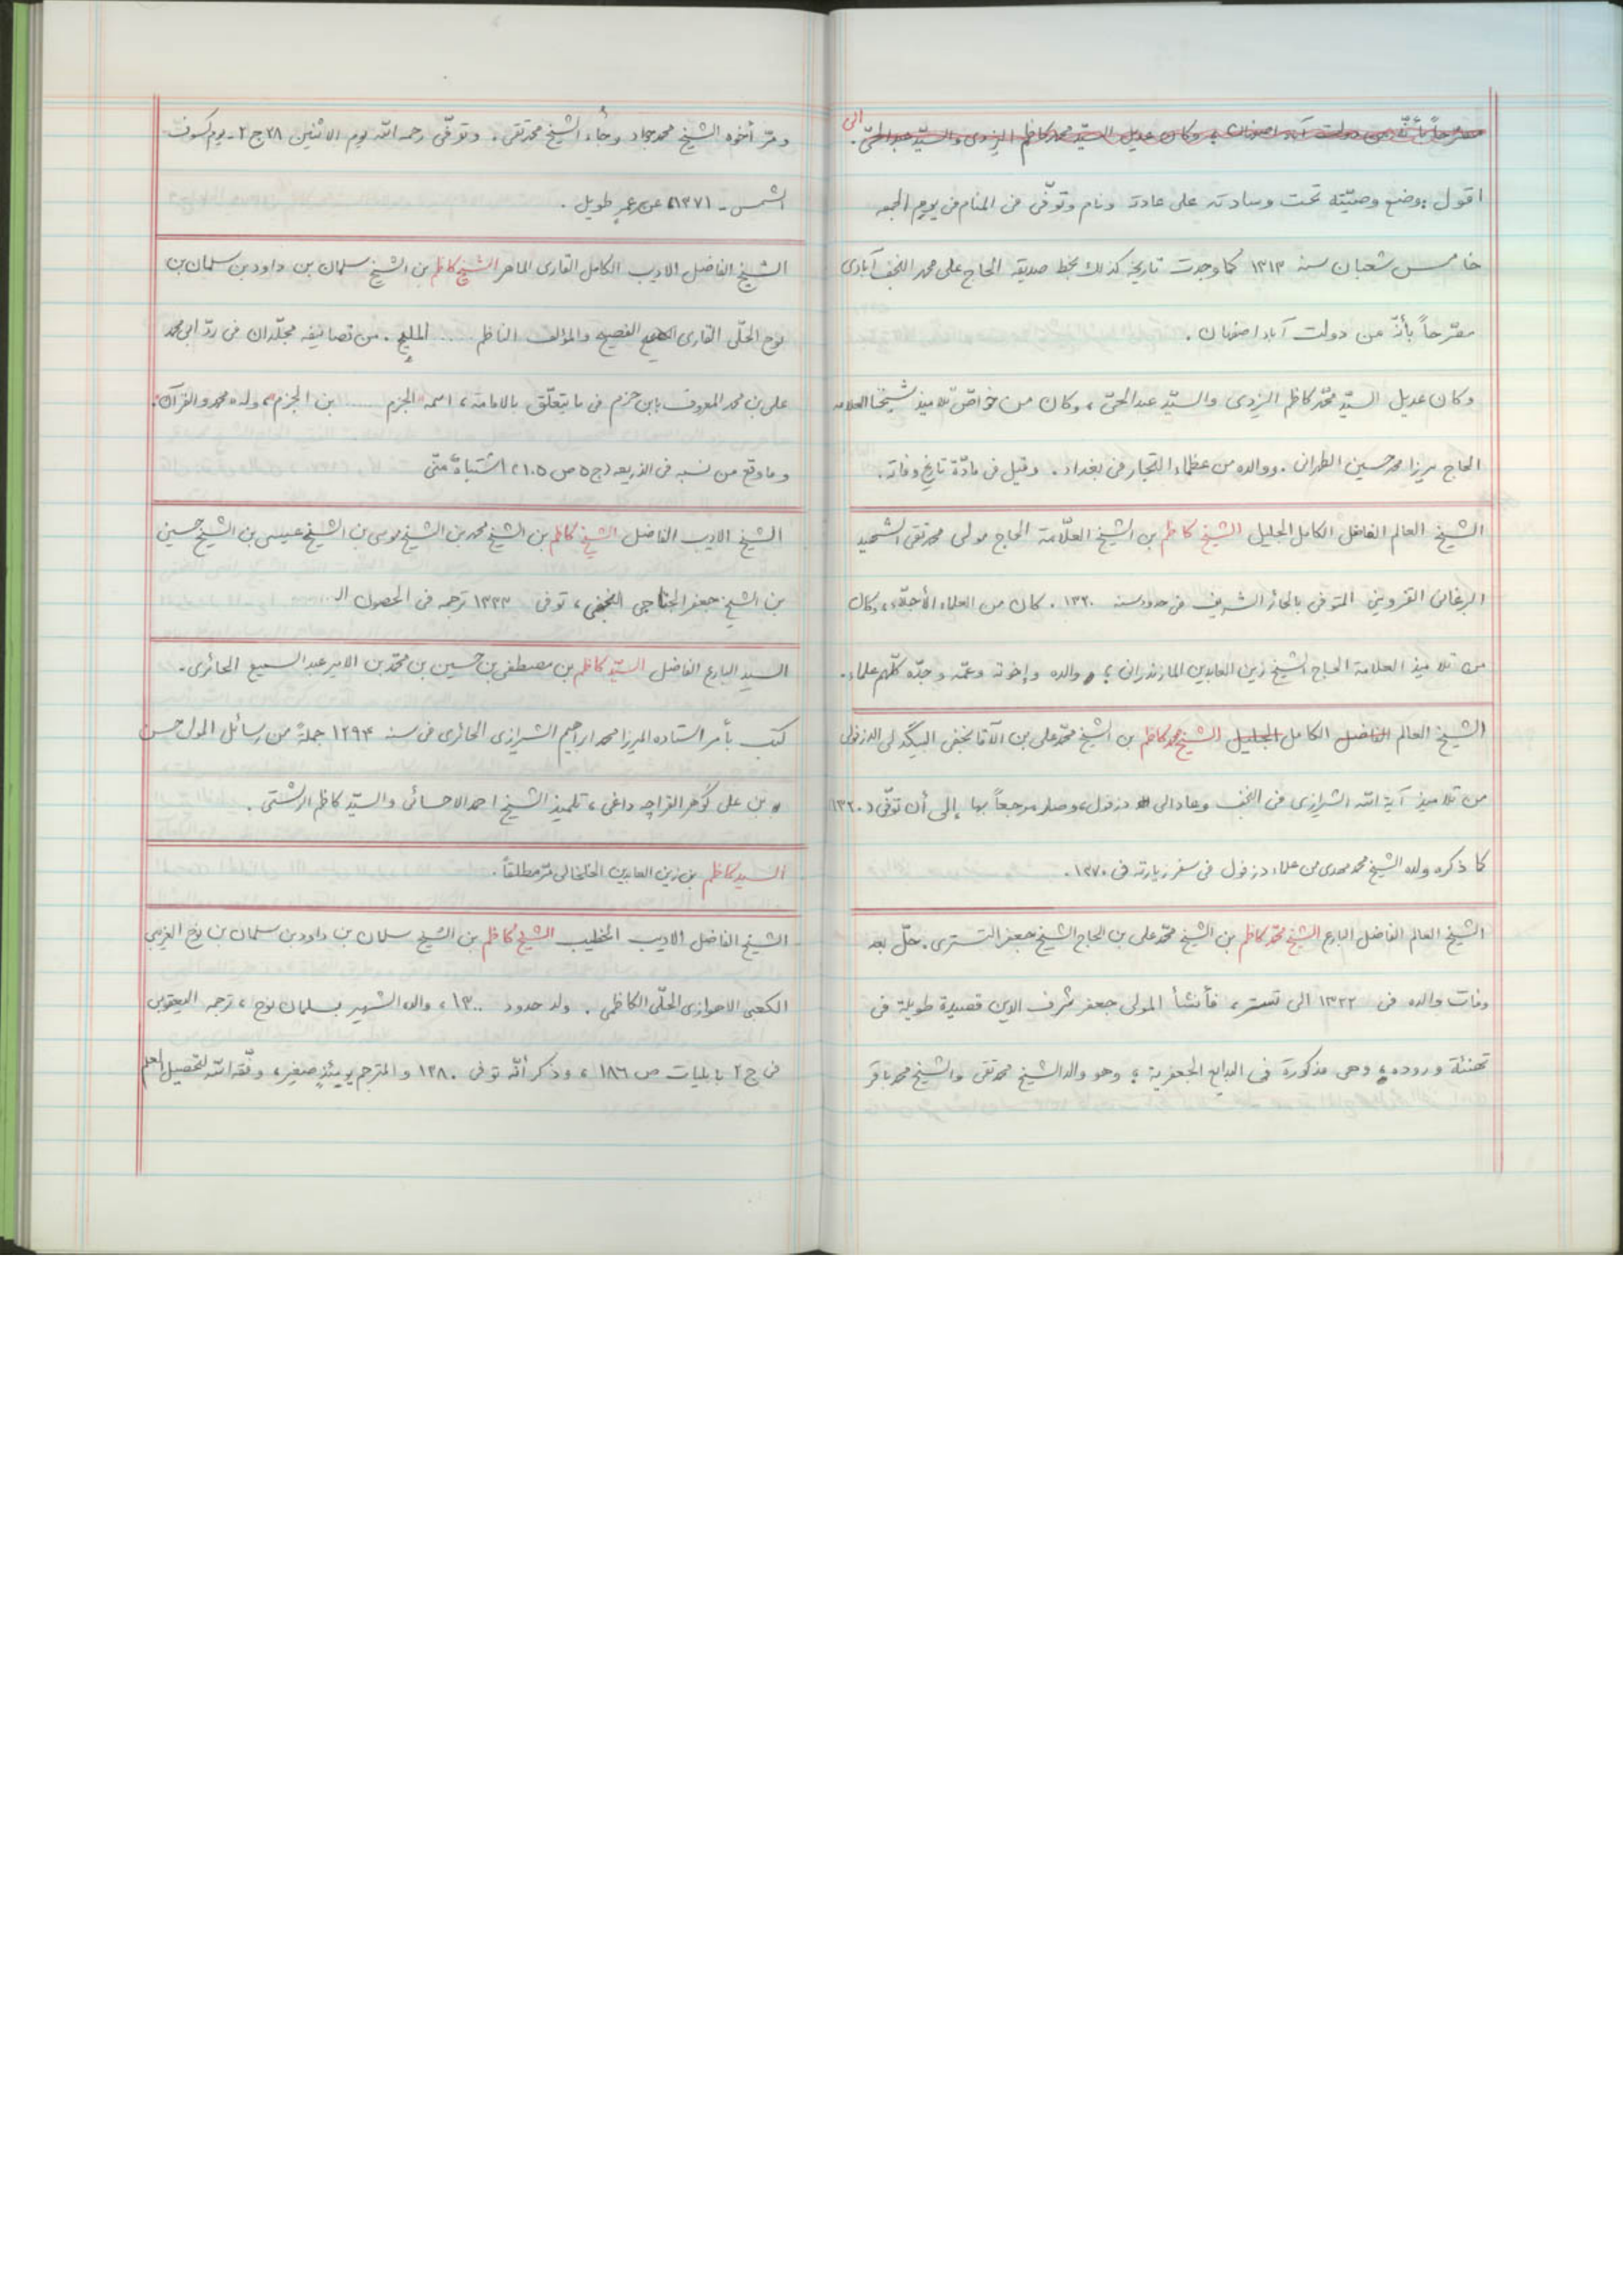 مصرّحاً بأنّه من دولت آباد اصفهان ؛ وكان عديل السيّد محمد كاظم اليزدى والسيّد عبد الحىّ . الى
اقول : وضع وصيّته تحت وسادته على عادته ونام وتوفّى فى المنام فى يوم الجمعه
خامس شعبان سنه ١٣١٣ كما وجدت تاريخه كذلك بخط صديقه الحاج على محمد النجف آبادى
مصرّحاً بأنّه من دولت آباد اصفهان .
وكان عديل السيّد محمّد كاظم اليزدى والسيّد عبد الحىّ ، وكان من خواصّ تلاميذ شيخنا العلامه
الحاج ميرزا محمد حسين الطهرانى . ووالده من عظماء التجار فى بغداد . وقيل فى مادّة تاريخ وفاته .
الشيخ العالم الفاضل الكامل الجليل الشيخ كاظم بن الشيخ العلّامة الحاج مولى محمد تقى الشهيد
البرغانى القزوينى المتوفى بالحائر الشريف فى حدود سنه ١٣٢٠ . كان من العلماء الأجلّاء ، وكان
من تلاميذ العلامة الحاج الشيخ زين العابدين المازندرانى ؛ و والده وإخوته وعمّه وجدّه كلّهم علماء .
الشيخ العالم الفاضل الكامل الجليل الشيخ محمد كاظم بن الشيخ محمّد على بن الآقا نجفى البيگدلى الدزفولى
من تلاميذ آية الله الشيرازى فى النجف وعاد الى دزفول ، وصار مرجعاً بها إلى أن توفّى ١٣٢٠
كما ذكره ولده الشيخ محمد مهدى من علماء دزفول فى سفر زيارته فى ١٣٧٠ .
الشيخ العالم الفاضل البارع الشيخ محمّد كاظم بن الشيخ محمّد على بن الحاج الشيخ جعفر التسترى . حلّ بعد
وفات والده فى ١٣٢٢ الى تستر ، فأنشأ المولى جعفر شرف الدين قصيدة طويلة فى
تهنئة وروده ؛ وهى مذكورة فى البدايع الجعفرية ؛ وهو والد الشيخ محمد تقى والشيخ محمد باقر
ومرّ أخوه الشيخ محمد جواد وجاء الشيخ محمد تقى . وتوفّى رحمه الله يوم الاثنين ٢٨ ج ٢ - يوم كسوف
الشمس - ١٣٧١ عن عمرٍ طويل .
الشيخ الفاضل الاديب الكامل القارى الماهر الشيخ كاظم بن الشيخ سلمان بن داود بن سلمان بن
نوح الحلّى القارى الفصيح والمؤلف الناظم ..... المليح . من تصانيفه مجلّدان فى ردّ ابى محمد
على بن محمد المعروف بابن حزم فى ما يتعلّق بالامامة ، اسمه "الجزم ..... بن الجزم" ، وله "محمد والقرآن"
وما وقع من نسبه فى الذريعه (ج ٥ ص ١٠٥) اشتباهٌ منّى
الشيخ الاديب الفاضل الشيخ كاظم بن الشيخ محمد بن الشيخ موسى بن الشيخ عيسى بن الشيخ حسين
بن الشيخ جعفر الجناجى النجفى ، توفى ١٣٣٣ ترجمه فى الحصون الـ ...
السيد البارع الفاضل السيّد كاظم بن مصطفى بن حسين بن محمّد بن الامير عبد السميع الحائرى .
كتب بأمر استاده الميرزا محمد ابراهيم الشيرازى الحائرى فى سنه ١٢٩٣ جملةً من رسائل المولى حسن
بن على گوهر القراچه داغى ، تلميذ الشيخ احمد الاحسائى والسيّد كاظم الرشتى .
السيد كاظم بن زين العابدين الخلخالى مرّ مطلقاً .
الشيخ الفاضل الاديب الخطيب الشيخ كاظم بن الشيخ سلمان بن داود بن سلمان بن نوح الغريبى
الكعبى الاهوازى الحلّى الكاظمى . ولد حدود ١٣٠٠ ، والده الشهير بسلمان نوح ، ترجمه اليعقوبى
فى ج ٢ بابليات ص ١٨٦ ، وذكر أنّه توفى ١٢٨٠ والمترجم يومئذٍ صغير ، وفّقه الله لتحصيل العلم